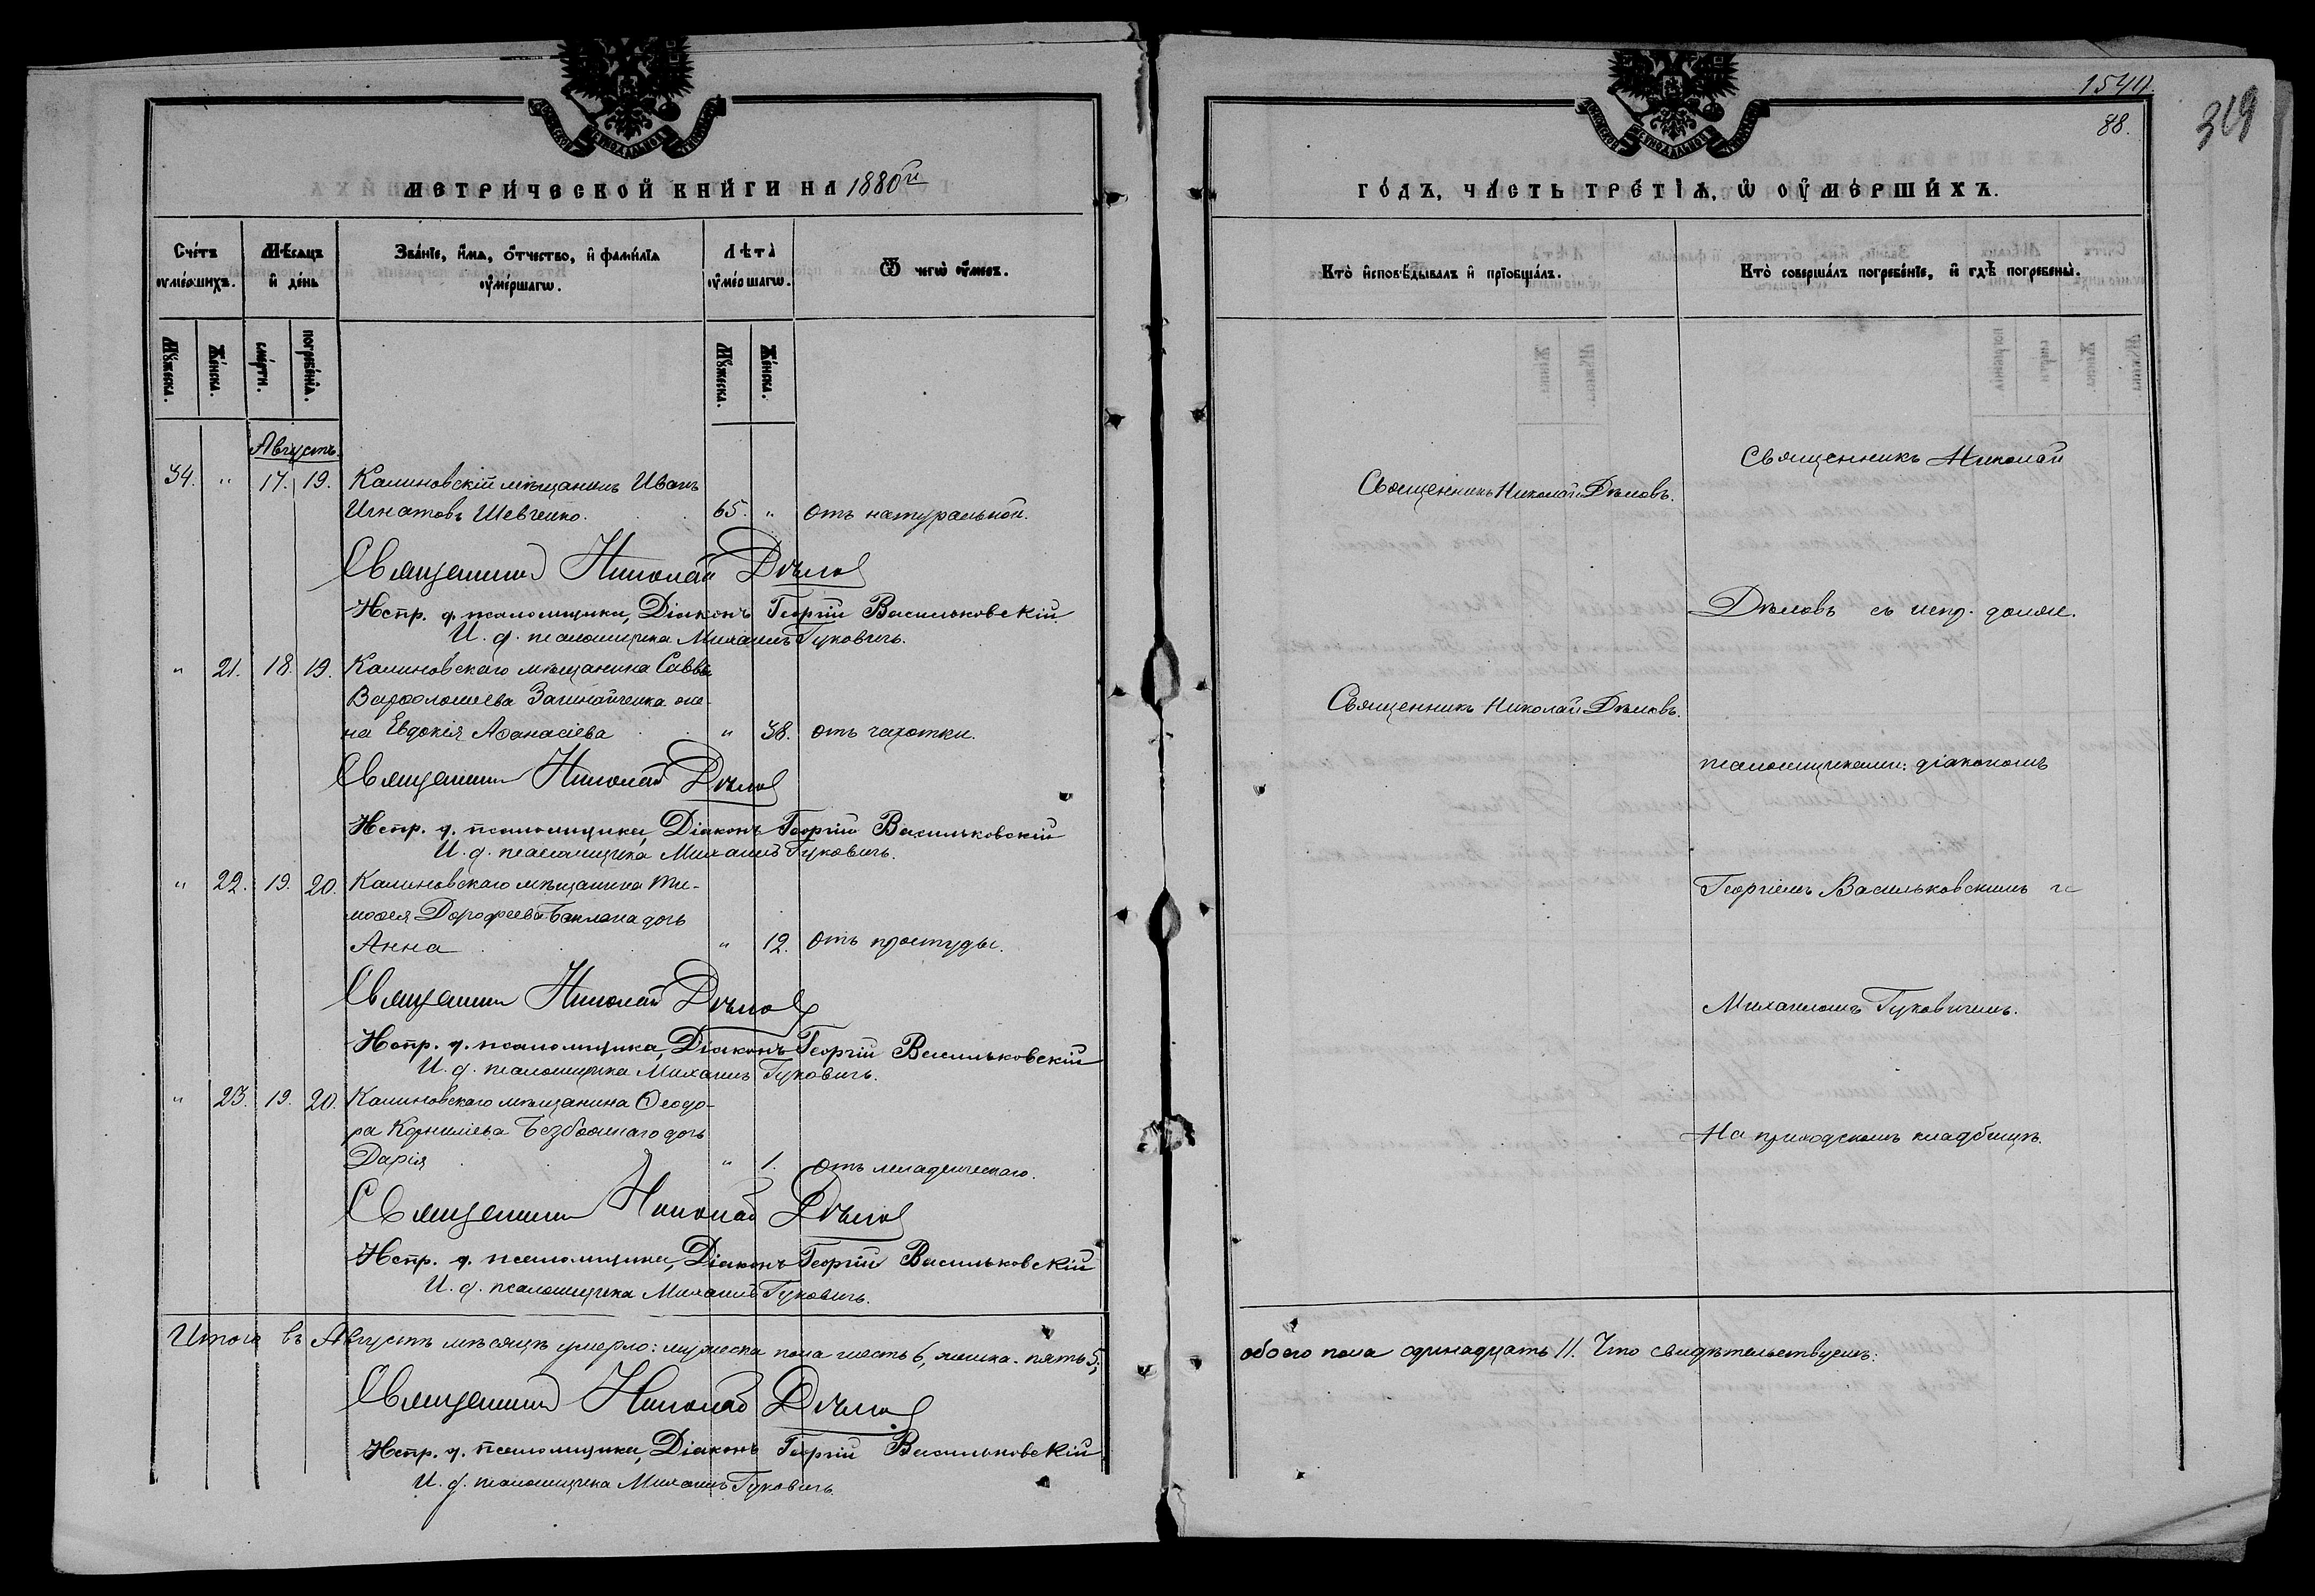 МЕТРИЧЕСКОЙ КНИГИ НА 1880й
Счётъ ѹмершихъ.
Мѣсяцъ и день
Званіе, имя, отчество, и фамилія ѹмершагѡ.
Лѣта ѹмершагѡ.
Ѿ чегѡ ѹмеръ.
Мѹжеска.
Женска.
смерти.
погребенія.
Мѹжеска.
Женска.
Августъ.
34. " 17. 19. Калиновскій мѣщанинъ Иванъ
Игнатовъ Шевченко. 65. " отъ натуральной.
Священникъ Николай Дѣловъ
Испр. д. псаломщика, Діаконъ Георгій Васильковскій
И. д. псаломщика Михаилъ Гуковичъ.
" 21. 18. 19. Калиновскаго мѣщанина Саввы
Варѳоломеева жена
на Евдокія Аѳанасіева " 38. отъ чахотки.
Священникъ Николай Дѣловъ
Испр. д. псаломщика, Діаконъ Георгій Васильковскій
И. д. псаломщика Михаилъ Гуковичъ.
" 22. 19. 20. Калиновскаго мѣщанина Ти-
моѳея Дороѳеева Баклана дочь
Анна " 12. отъ простуды.
Священникъ Николай Дѣловъ
Испр. д. псаломщика, Діаконъ Георгій Васильковскій
И. д. псаломщика Михаилъ Гуковичъ.
" 23. 19. 20. Калиновскаго мѣщанина Ѳеодо-
ра Корниліева дочь
Дарія " 1. отъ младенческаго.
Священникъ Николай Дѣловъ
Испр. д. псаломщика, Діаконъ Георгій Васильковскій
И. д. псаломщика Михаилъ Гуковичъ.
Итого въ Августѣ мѣсяцѣ умерло: мужеска пола шесть 6, женска - пять 5,
Священникъ Николай Дѣловъ
Испр. д. псаломщика, Діаконъ Георгій Васильковскій
И. д. псаломщика Михаилъ Гуковичъ
88.
319
ГОДЪ, ЧАСТЬ ТРЕТІѦ, Ѡ ОУМЕРШИХЪ.
Кто исповѣдывалъ и пріобщалъ.
Кто совершалъ погребеніе, и гдѣ погребены.
Священникъ Николай Дѣловъ.
Священникъ Николай Дѣловъ.
Священникъ Николай
Дѣловъ съ испр. долж.
псаломщиками: діакономъ
Георгіемъ Васильковскимъ и
Михаиломъ Гуковичемъ.
На приходскомъ кладбищѣ.
обоего пола одинадцать 11. Что свидѣтельствуемъ: